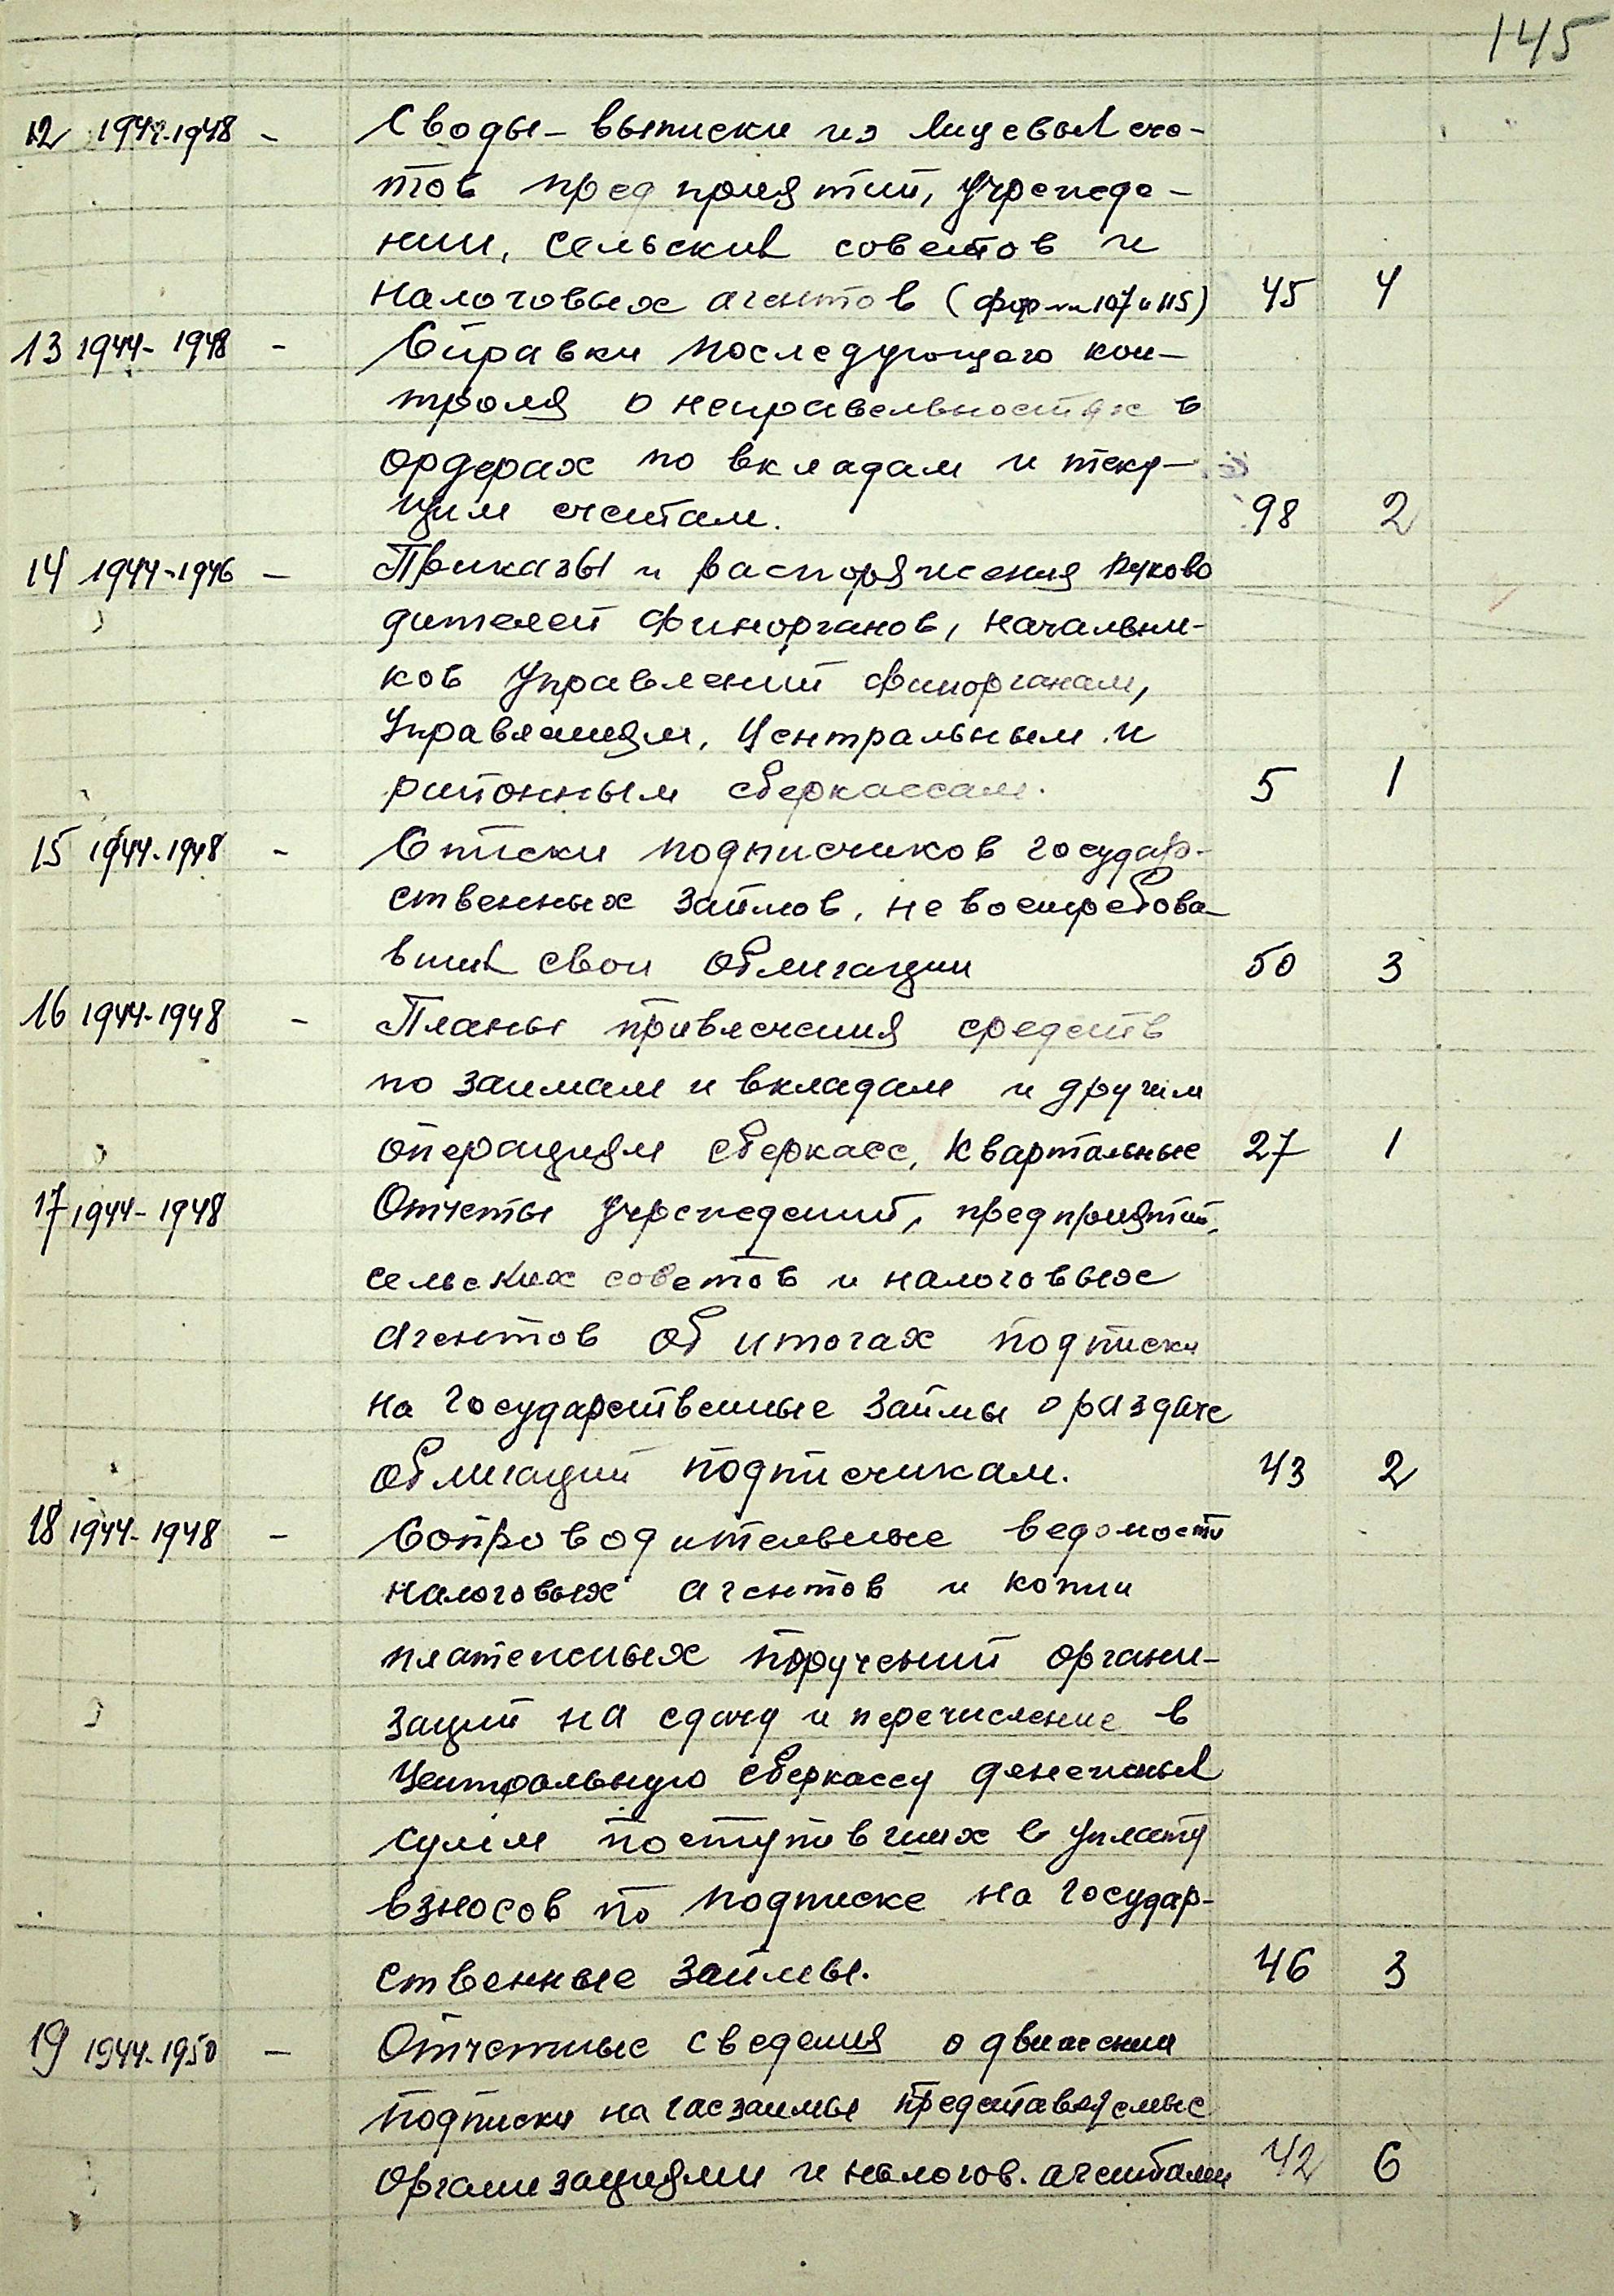 145
12 1944-1948 - Своды-выписки из лицевых сче-
тов предприятий, учрежде-
нии, сельских советов и
налоговых агентов (форм 107 и 115) 45 4
13 1944-1948 - Справки последующего кон-
троля о неправельностях в
ордерах по вкладам и теку-
щим счетам. 98 2
14 1944-1946 - Приказы и распоряжения руково
дителей финорганов, начальни-
ков Управлений финорганам,
Управлениям, Центральным и
районным сберкассам. 5 1
15 1944-1948 - Списки подписчиков государ-
ственных займов, не востребова-
вших свои облигации 50 3
16 1944-1948 - Планы привлечения средств
по займам и вкладам и другим
операциям сберкасс, квартальные 27 1
17 1944-1948 Отчеты учреждений, предприятий,
сельских советов и налоговых
агентов об итогах подписки
на государственные займы о раздаче
облигаций подписчикам. 43 2
18 1944-1948 - Сопроводительные ведомости
налоговых агентов и копии
платежных поручений органи-
заций на сдачу и перечисление в
Центральную сберкассу денежных
сумм поступивших в уплату
взносов по подписке на государ-
ственные займы. 46 3
19 1944-1950 - Отчетные сведения о движении
подписки на госзаймы представляемые
организациями и налогов. агентами 42 6